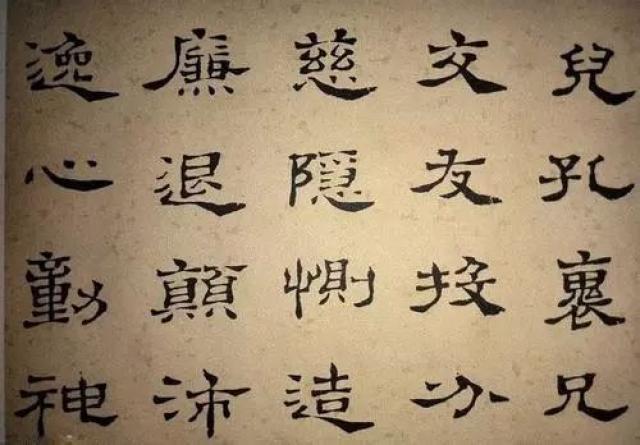 兒孔裹兄
交友投分
慈隱惻造
廉退顛沛
逸心動神